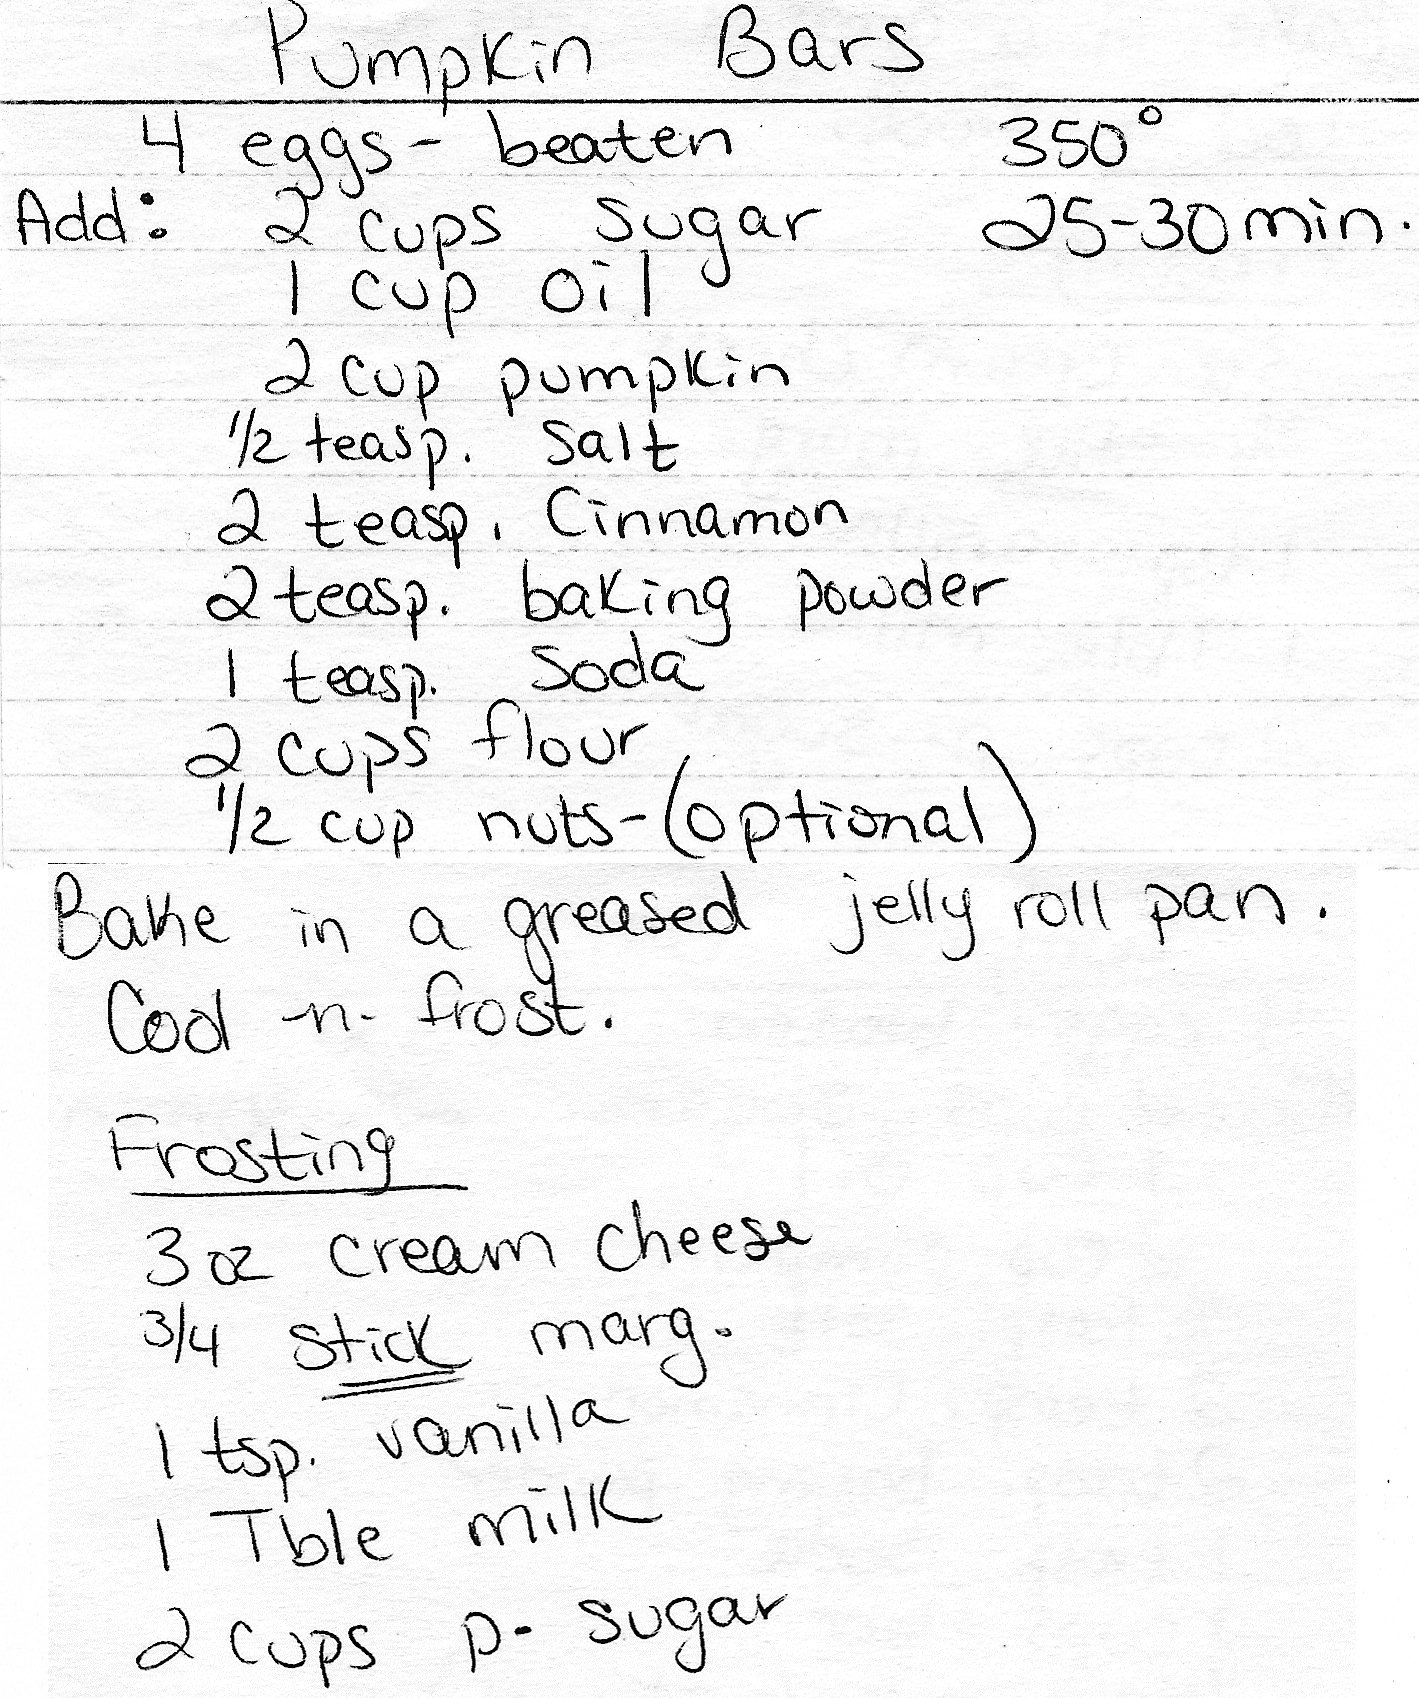 Pumpkin Bars
4 eggs - beaten 350°
Add: 2 cups sugar 25-30 min.
1 cup oil
2 cup pumpkin
1/2 teasp. Salt
2 teasp. Cinnamon
2 teasp. baking powder
1 teasp. Soda
2 cups flour
1/2 cup nuts - (optional)
Bake in a greased jelly roll pan.
Cool -n- frost.
Frosting
3 oz cream cheese
3/4 stick marg.
1 tsp. vanilla
1 Tble milk
2 cups p. sugar